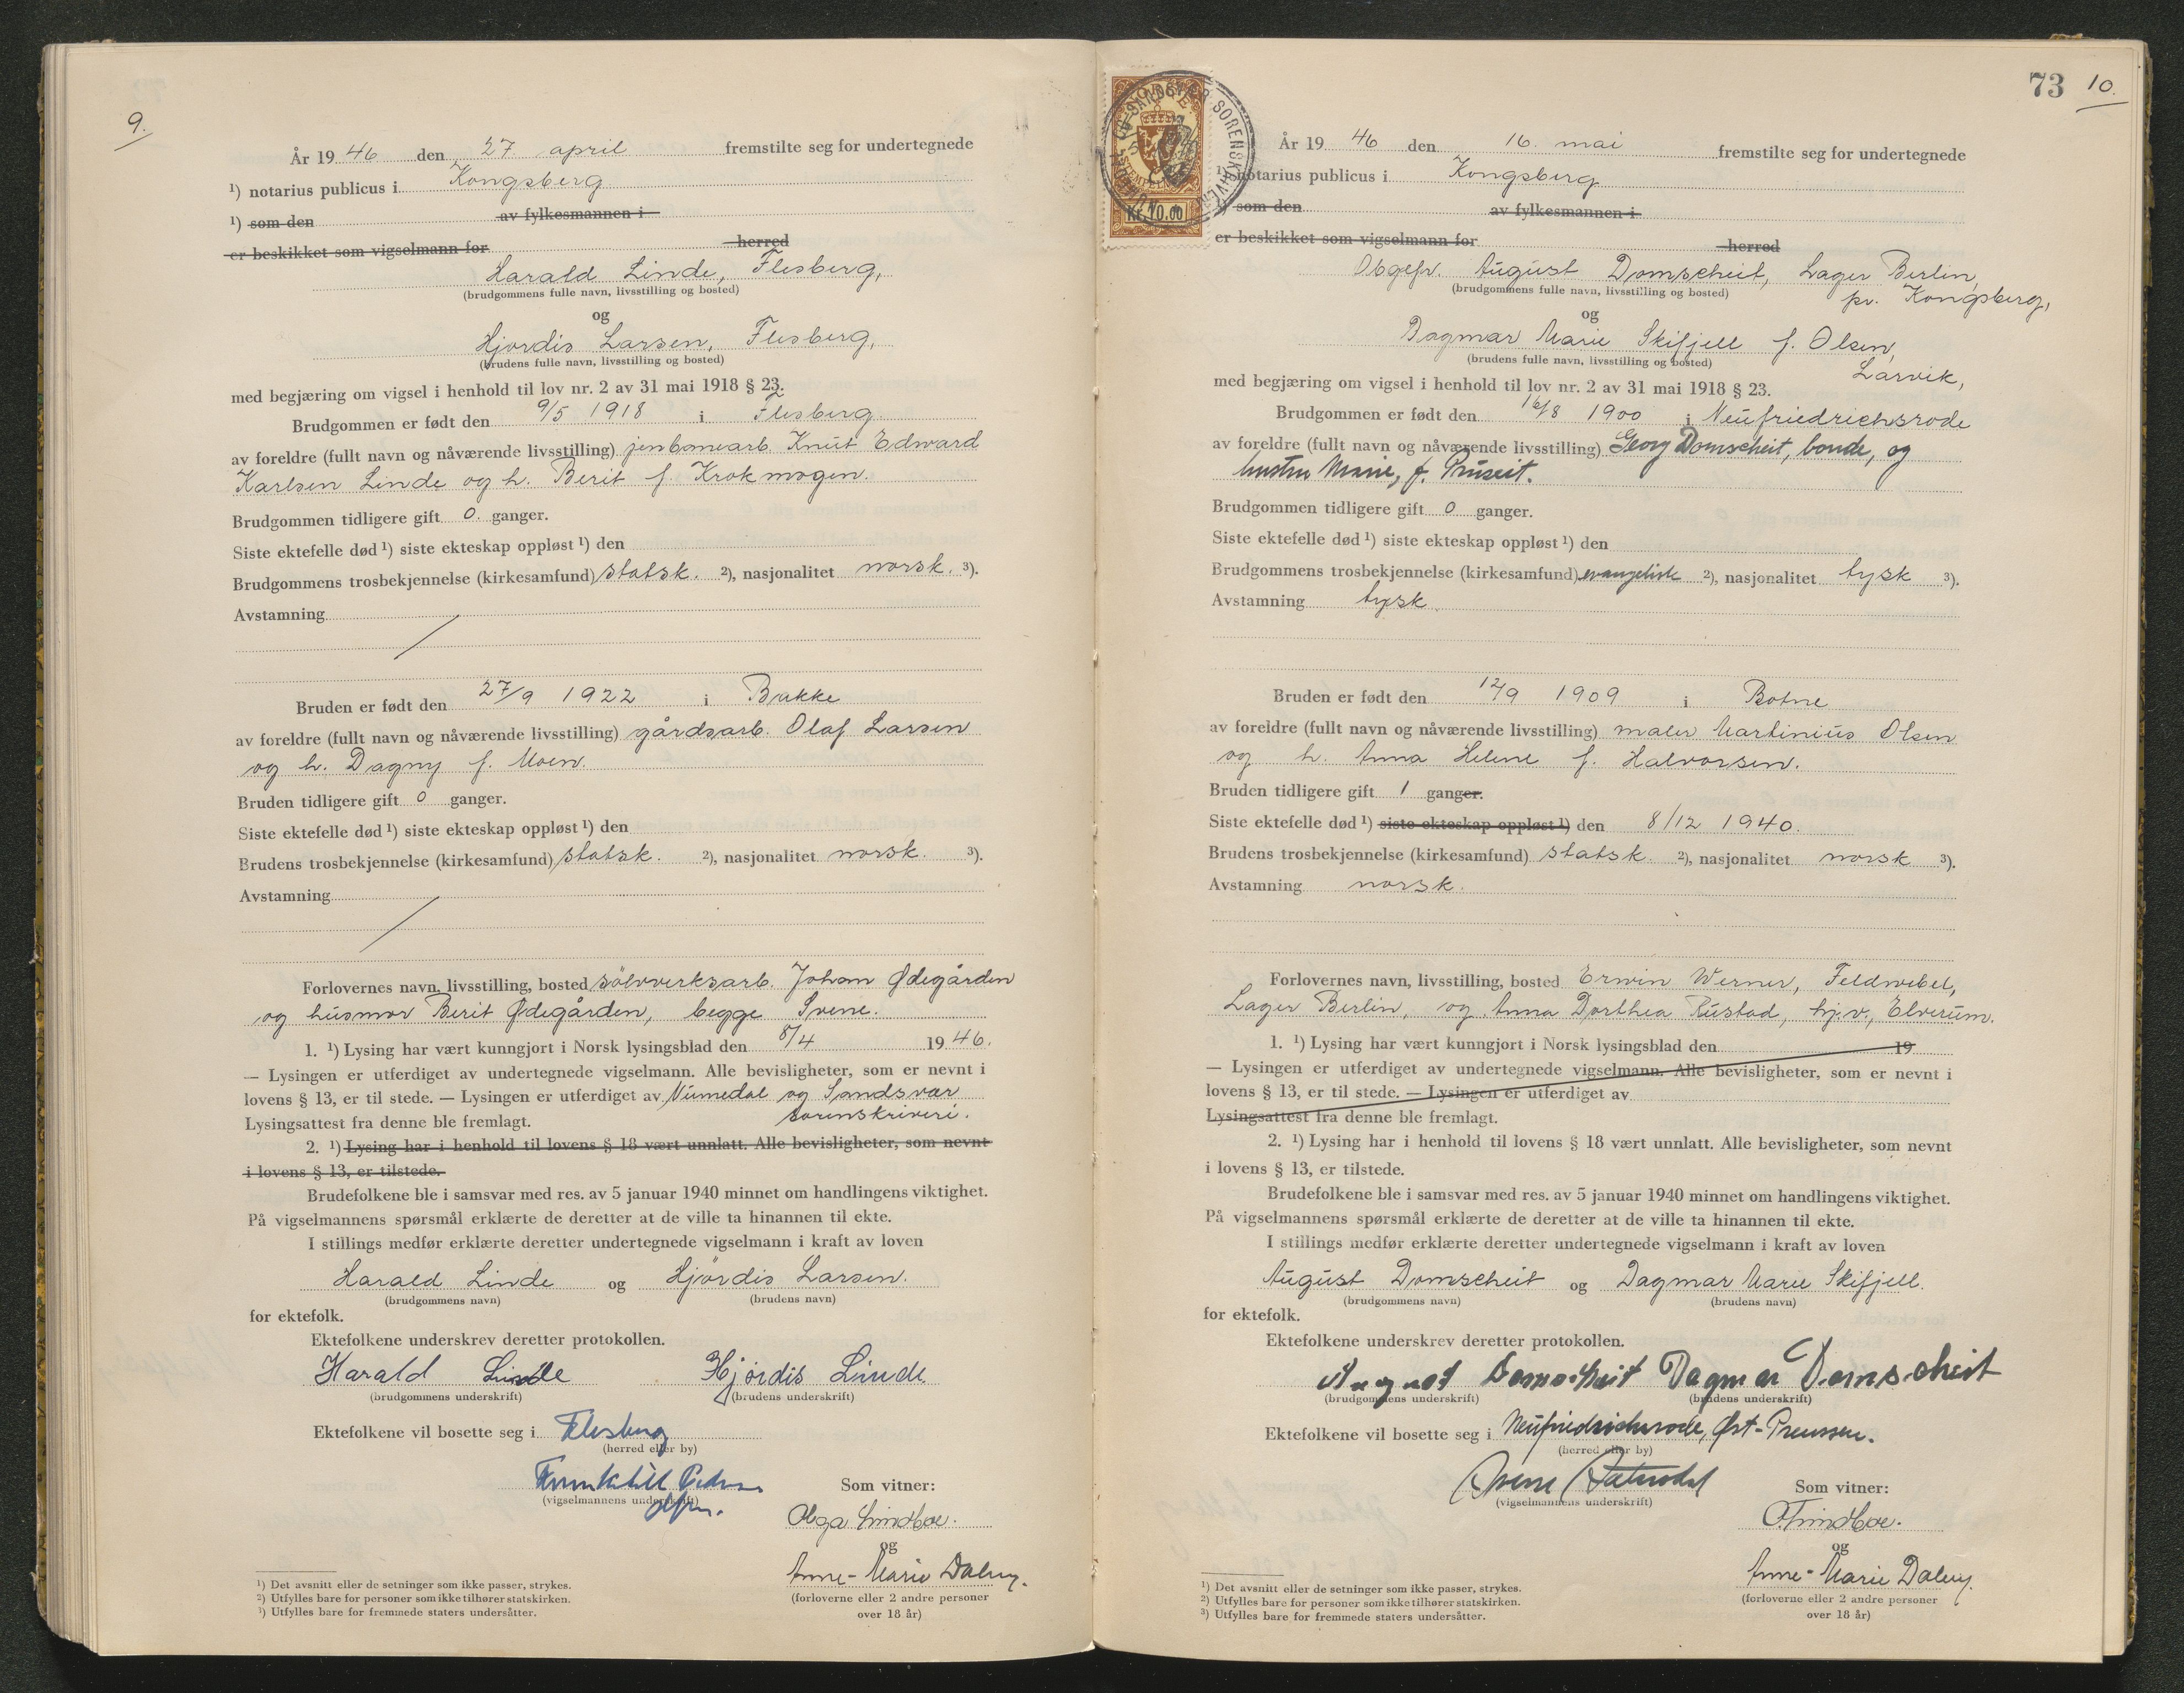 9.
År 19 46 den 27 april fremstilte seg for undertegnede
¹) notarius publicus i Kongsberg
¹) som den av fylkesmannen i
er beskikket som vigselmann for herred
Harald Linde, Flesberg,
(brudgommens fulle navn, livsstilling og bosted)
og
Hjordis Larsen, Flesberg,
(brudens fulle navn, livsstilling og bosted)
med begjæring om vigsel i henhold til lov nr. 2 av 31 mai 1918 § 23.
Brudgommen er født den 9/5 1918 i Flesberg
av foreldre (fullt navn og nåværende livsstilling) jernbanearb. Knut Edward
Karlsen Linde og h. Berit f. Krokmogen.
Brudgommen tidligere gift 0. ganger.
Siste ektefelle død ¹) siste ekteskap oppløst ¹) den
Brudgommens trosbekjennelse (kirkesamfund) statsk. ²), nasjonalitet norsk. ³).
Avstamning /
Bruden er født den 27/9 1922 i Bakke
av foreldre (fullt navn og nåværende livsstilling) gårdsarb. Olaf Larsen
og h. Dagny f. Moen.
Bruden tidligere gift 0 ganger.
Siste ektefelle død ¹) siste ekteskap oppløst ¹) den
Brudens trosbekjennelse (kirkesamfund) statsk. ²), nasjonalitet norsk. ³).
Avstamning /
Forlovernes navn, livsstilling, bosted sölvverksarb. Johan Ødegården
og husmor Berit Ødegården, begge Svene.
1. ¹) Lysing har vært kunngjort i Norsk lysingsblad den 8/4 19 46.
— Lysingen er utferdiget av undertegnede vigselmann. Alle bevisligheter, som er nevnt i
lovens § 13, er til stede. — Lysingen er utferdiget av Numedal og Sandsvær
Lysingsattest fra denne ble fremlagt. sorenskriveri.
2. ¹) Lysing har i henhold til lovens § 18 vært unnlatt. Alle bevisligheter, som nevnt
i lovens § 13, er tilstede.
Brudefolkene ble i samsvar med res. av 5 januar 1940 minnet om handlingens viktighet.
På vigselmannens spørsmål erklærte de deretter at de ville ta hinannen til ekte.
I stillings medfør erklærte deretter undertegnede vigselmann i kraft av loven
Harald Linde og Hjördis Larsen.
(brudgommens navn) (brudens navn)
for ektefolk.
Ektefolkene underskrev deretter protokollen.
Harald Linde Hjördis Linde
(brudgommens underskrift) (brudens underskrift)
Ektefolkene vil bosette seg i Flesberg
(herred eller by)
(vigselmannens underskrift)
Som vitner:
Olga Lindboe.
og
Anne-Marie Dalby.
(forloverne eller 2 andre personer
over 18 år)
¹) Det avsnitt eller de setninger som ikke passer, strykes.
²) Utfylles bare for personer som ikke tilhører statskirken.
³) Utfylles bare for fremmede staters undersåtter.
73 10.
Kr. 10.00
SORENSKRIVER
År 19 46 den 16. mai fremstilte seg for undertegnede
¹) notarius publicus i Kongsberg
¹) som den av fylkesmannen i
er beskikket som vigselmann for herred
Obgefr. August Domscheit, Lager Berlin,
(brudgommens fulle navn, livsstilling og bosted) pr. Kongsberg,
og
Dagmar Marie Skifjell f. Olsen,
(brudens fulle navn, livsstilling og bosted) Larvik,
med begjæring om vigsel i henhold til lov nr. 2 av 31 mai 1918 § 23.
Brudgommen er født den 16/8 1900 i Neufriedrichsrode
av foreldre (fullt navn og nåværende livsstilling) Georg Domscheit, bonde, og
hustru Marie, f. Pruseit.
Brudgommen tidligere gift 0 ganger.
Siste ektefelle død ¹) siste ekteskap oppløst ¹) den
Brudgommens trosbekjennelse (kirkesamfund) evangelisk ²), nasjonalitet tysk ³).
Avstamning tysk.
Bruden er født den 12/9 1909 i Botne
av foreldre (fullt navn og nåværende livsstilling) maler Martinius Olsen
og h. Anna Helene f. Halvorsen.
Bruden tidligere gift 1 ganger.
Siste ektefelle død ¹) siste ekteskap oppløst ¹) den 8/12 1940.
Brudens trosbekjennelse (kirkesamfund) statsk. ²), nasjonalitet norsk ³).
Avstamning norsk.
Forlovernes navn, livsstilling, bosted Erwin Werner, Feldwebel,
Lager Berlin, og Anna Dorthea Rustad, hj.v., Elverum.
1. ¹) Lysing har vært kunngjort i Norsk lysingsblad den 19
— Lysingen er utferdiget av undertegnede vigselmann. Alle bevisligheter, som er nevnt i
lovens § 13, er til stede. — Lysingen er utferdiget av
Lysingsattest fra denne ble fremlagt.
2. ¹) Lysing har i henhold til lovens § 18 vært unnlatt. Alle bevisligheter, som nevnt
i lovens § 13, er tilstede.
Brudefolkene ble i samsvar med res. av 5 januar 1940 minnet om handlingens viktighet.
På vigselmannens spørsmål erklærte de deretter at de ville ta hinannen til ekte.
I stillings medfør erklærte deretter undertegnede vigselmann i kraft av loven
August Domscheit og Dagmar Marie Skifjell.
(brudgommens navn) (brudens navn)
for ektefolk.
Ektefolkene underskrev deretter protokollen.
August Domscheit Dagmar Domscheit
(brudgommens underskrift) (brudens underskrift)
Ektefolkene vil bosette seg i Neufriedrichsrode, Øst-Preussen.
(herred eller by)
(vigselmannens underskrift)
Som vitner:
O. Lindboe.
og
Anne-Marie Dalby.
(forloverne eller 2 andre personer
over 18 år)
¹) Det avsnitt eller de setninger som ikke passer, strykes.
²) Utfylles bare for personer som ikke tilhører statskirken.
³) Utfylles bare for fremmede staters undersåtter.